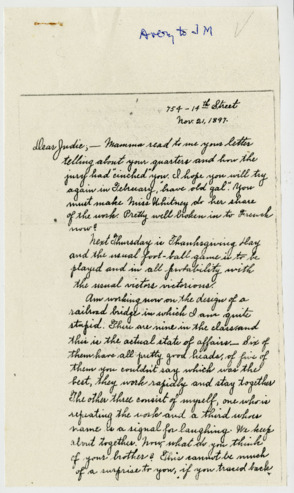 Avery to J M
754 - 14th Street
Nov. 21, 1897.
Dear Judie, — Mamma read to me your letter
telling about your quarters and how the
jury had "cinched" you. I hope you will try
again in February, brave old gal." You
must make Miss Whitney do her share
of the work. Pretty well broken in to French
now?
Next Thursday is Thanksgiving day
and the usual foot-ball game is to be
played and in all probability with
the usual victors victorious.
Am working now on the design of a
railroad bridge in which I am quite
stupid. There are nine in the class and
this is the actual state of affairs — Six of
them have all pretty good heads, of five of
them you couldn't say which was the
best, they work rapidly and stay together
The other three consist of myself, one who is
repeating the work and a third whose
name is a signal for laughing. We keep
about together. Now what do you think
of your brother? This cannot be much
of a surprise to you, if you traced back